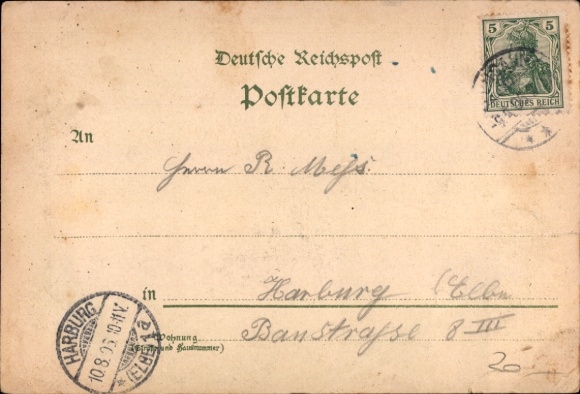 5 5
DEUTSCHES REICH
Deutsche Reichspost
Postkarte
An
Herrn R. Mess.
in Harburg (Elbe
Wohnung
(Straße und Hausnummer)
Baustrasse 8 III
HARBURG
10.8.03 10-11V.
(ELBE) 1a
20.-